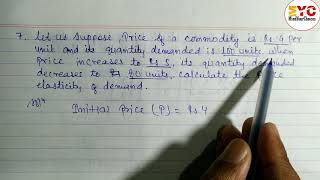 SYC
7. Let us suppose, Price of a commodity is Rs 4 per
unit and its quantity demanded is 100 units. When
price increases to Rs 5, its quantity demanded
decreases to units, calculate the Price
elasticity of demand.
Initial Price (P) = Rs 4